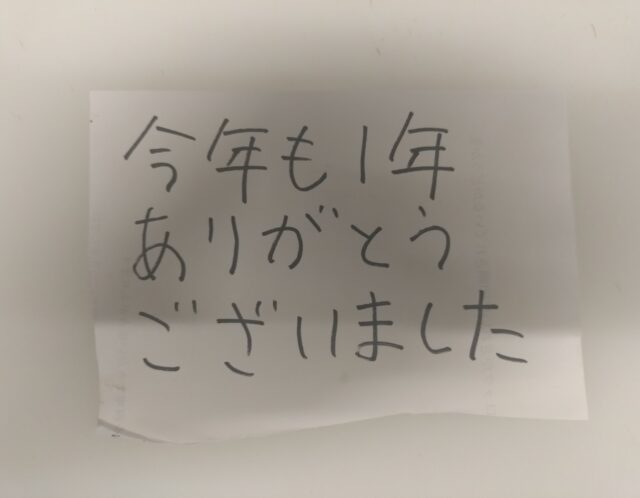 今年も1年
ありがとう
ございました